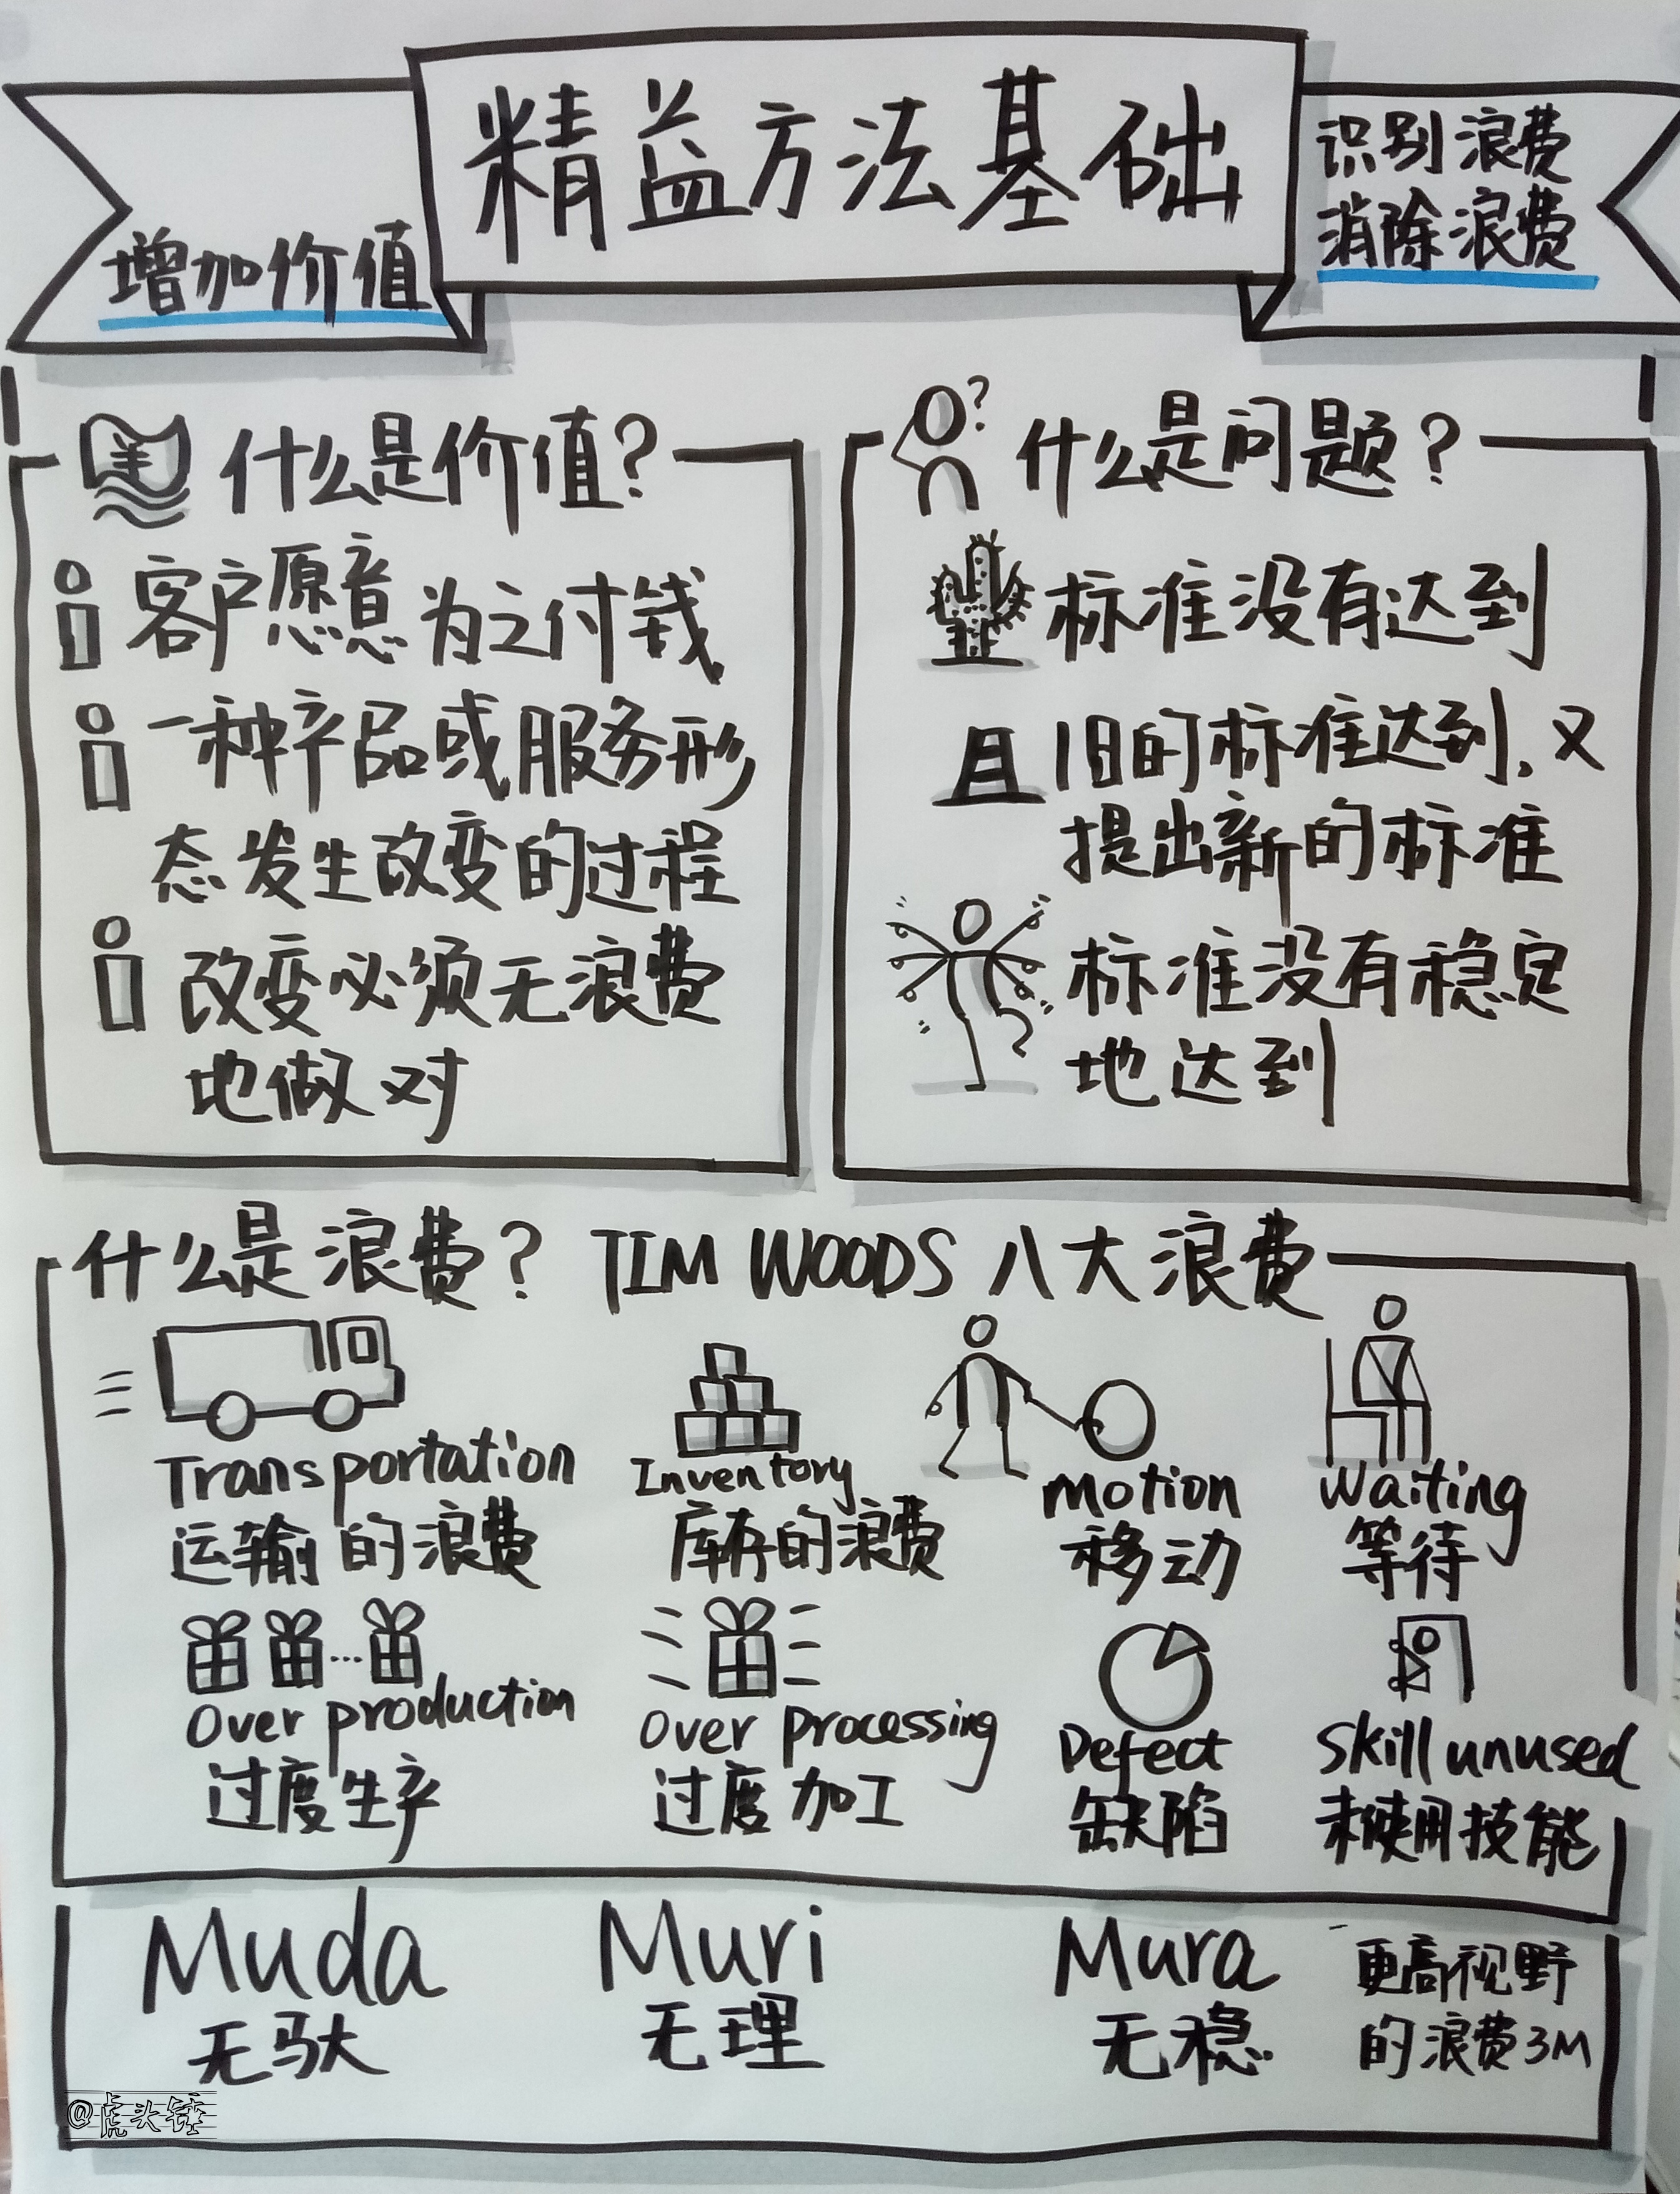 精益方法基础
增加价值
识别浪费
消除浪费
什么是价值?
客户愿意为之付钱
一种产品或服务形
态发生改变的过程
改变必须无浪费
地做对
什么是问题?
标准没有达到
旧的标准达到,又
提出新的标准
标准没有稳定
地达到
什么是浪费? TIM WOODS 八大浪费
Transportation
运输的浪费
Inventory
库存的浪费
Motion
移动
Waiting
等待
Over production
过度生产
Over processing
过度加工
Defect
缺陷
Skill unused
未使用技能
Muda
无驮
Muri
无理
Mura
无稳
更高视野
的浪费3M
@虎头锤